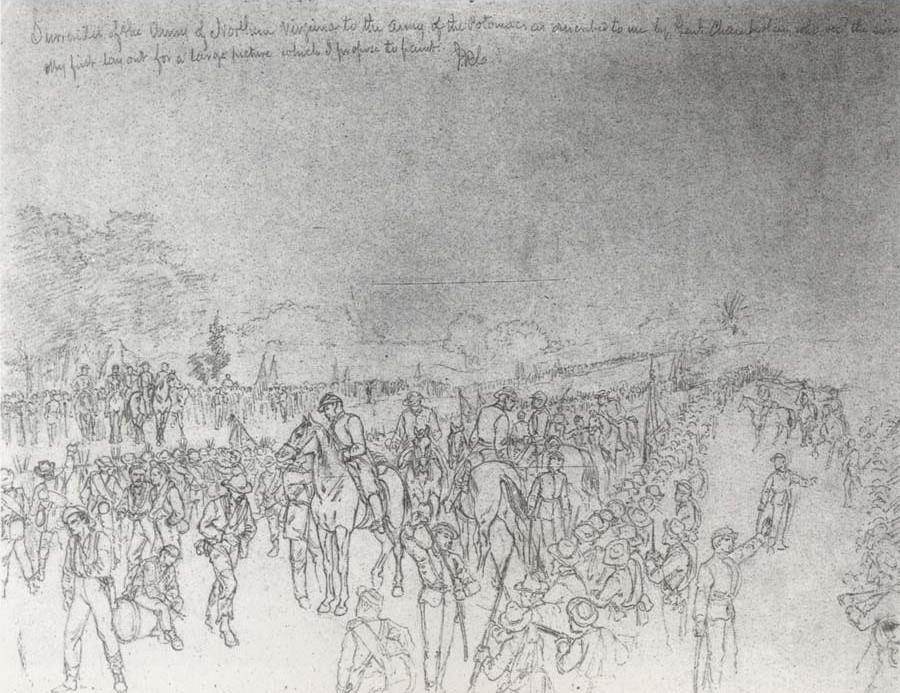 Surrender of the Army of Northern Virginia to the Army of the Potomac as described to me by Genl Chamberlain, who recd the surre
My first lay out for a large picture which I propose to paint.